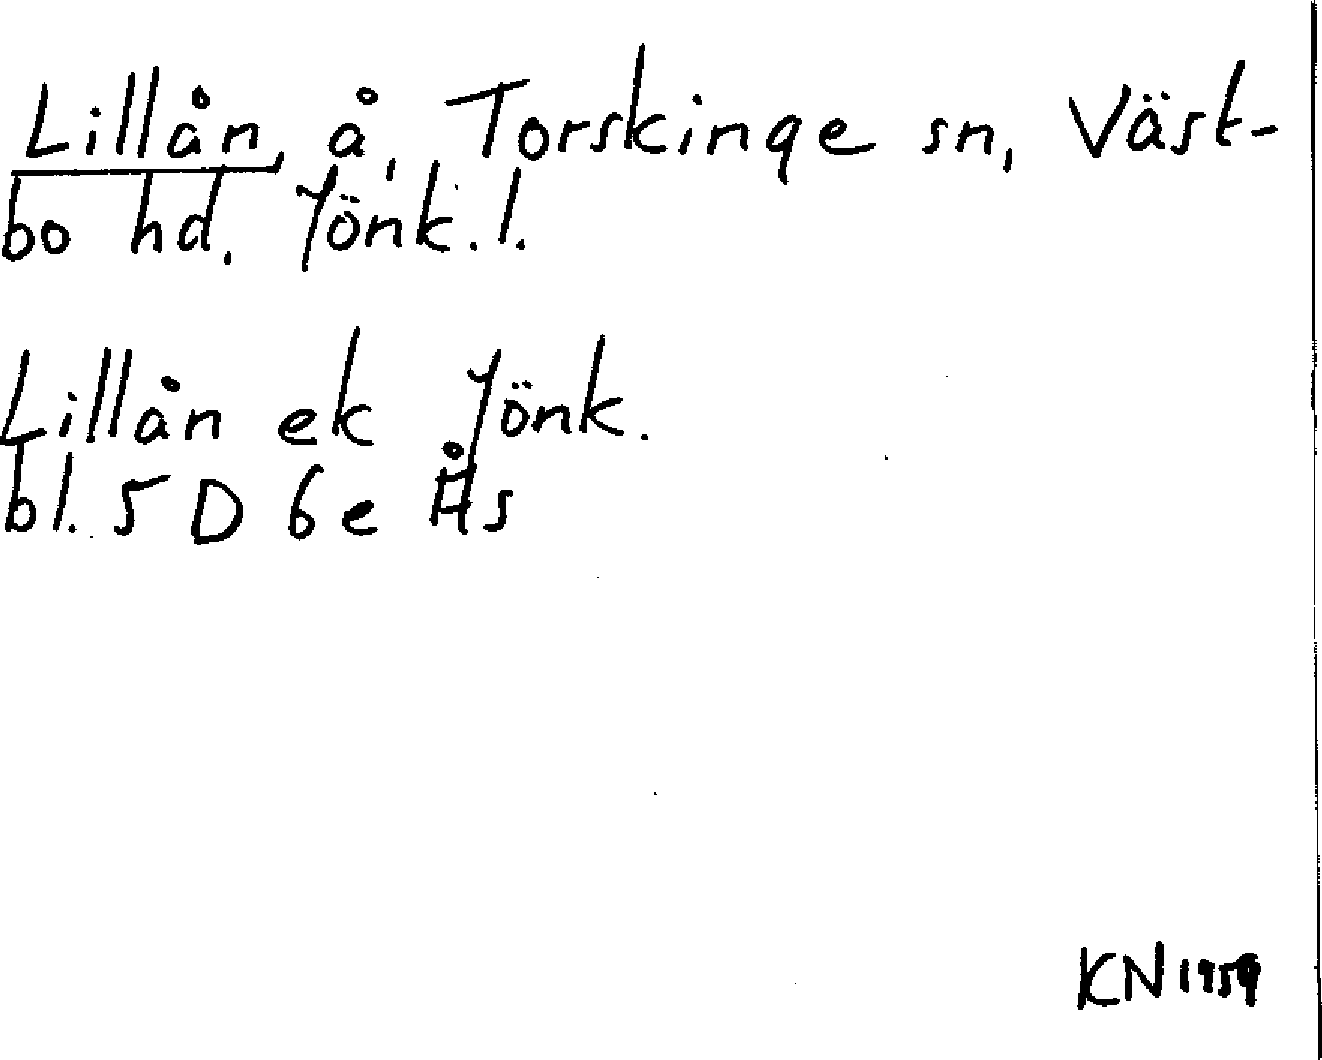 Lillån, å, Torskinge sn, Väst-
bo hd. Jönk. l.
Lillån ek Jönk.
bl. 5 D 6e Ås
KN 1959